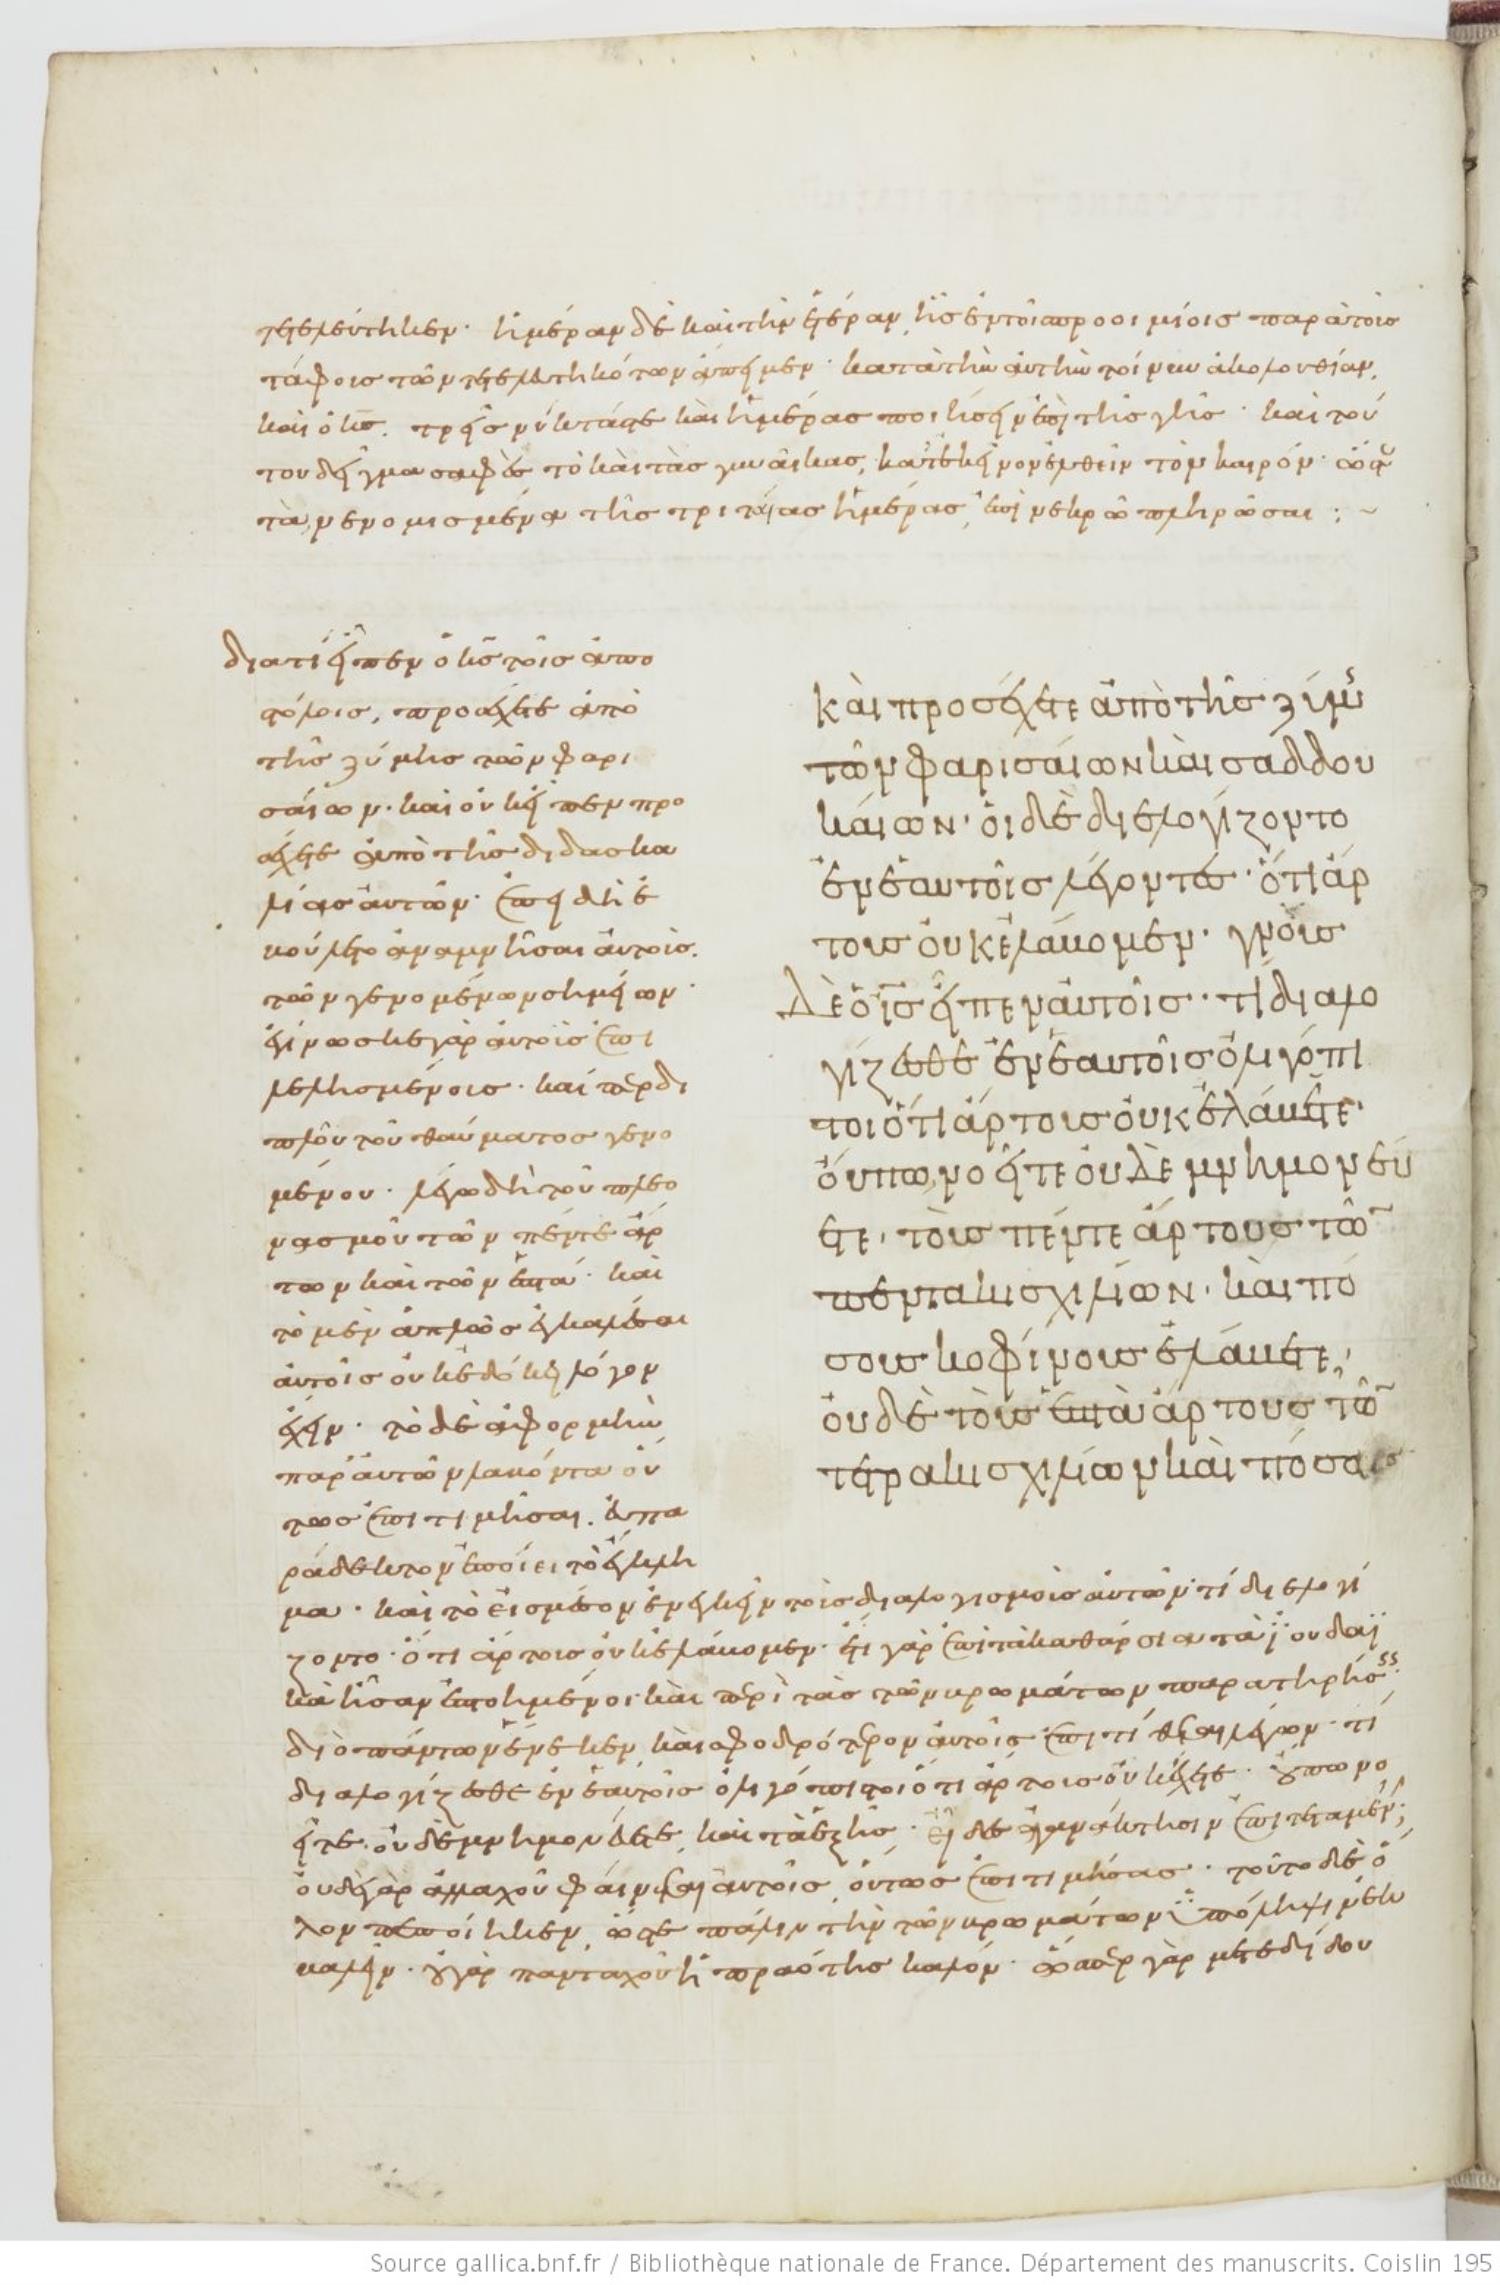 τετελεύτηκεν· ἡμέραν δὲ καὶ τὴν ἑτέραν, ἧς ἐν τοῖς προοιμίοις παρὰ τοῖς
τάφοις τῶν τετελευτηκότων ἄπιμεν· κατὰ τὴν αὐτὴν τοίνυν ἀκολουθίαν,
καὶ ὁ κς, τρεῖς νύκτας τε καὶ ἡμέρας ποιήσειν ἐπὶ τῆς γῆς· καὶ τού
του δεῖγμα σαφὲς τὸ καὶ τὰς γυναῖκας, κατ' ἐκεῖνον ἐλθεῖν τὸν καιρόν· ὥστε
τὰ νενομισμένα τῆς τριταίας ἡμέρας, ἐπὶ νεκρῷ πληρῶσαι :~
διατί εἶπεν ὁ κς τοῖς ἀπο
στόλοις, προσέχετε ἀπὸ
τῆς ζύμης τῶν φαρι
σαίων· καὶ οὐκ εἶπεν προ
σέχετε ἀπὸ τῆς διδασκα
λίας αὐτῶν· ἐπειδὴ ἐ
βούλετο ἀναμνῆσαι αὐτοὺς
τῶν γενομένων σημείων·
ἐγίνωσκε γὰρ αὐτοὺς ἐπι
λελησμένους· καίπερ δι
πλοῦ τοῦ θαύματος γενο
μένου· λέγω δὴ τοῦ πλεο
νασμοῦ τῶν πέντε ἄρ
των καὶ τῶν ἑπτά· καὶ
τὸ μὲν ἁπλῶς ἐγκαλέσαι
αὐτοῖς οὐκ ἐδόκει λόγον
ἔχειν· τὸ δὲ ἀφορμὴν
παρ' αὐτῶν λαβόντα οὕ
τως ἐπιτιμῆσαι, εὐπα
ράδεκτον ἐποίει τὸ ἔγκλη
μα· καὶ τὸ εἰς μέσον ἐνεγκεῖν τοὺς διαλογισμοὺς αὐτῶν· τί διελογί
ζοντο· ὅτι ἄρτους οὐκ ἐλάβομεν· ἔτι γὰρ ἐπὶ τὰ καθάρσια τὰ ϊουδαϊ
κὰ ἦσαν ἐπτοημένοι καὶ περὶ τὰς τῶν βρωμάτων παρατηρήσεις·
διὸ πάντων ἕνεκεν, καὶ σφοδρότερον αὐτοῖς ἐπιτίθεται λέγων· τί
διαλογίζεσθε ἐν ἑαυτοῖς ὀλιγόπιστοι ὅτι ἄρτους οὐκ ἔχετε· οὔπω νο
εῖτε· οὐδὲ μνημονεύετε, καὶ τὰ ἑξῆς· εἶδες ἀγανάκτησιν ἐπιτεταμένην;
οὐδὲ γὰρ ἀλλαχοῦ φαίνεται αὐτοῖς, οὕτως ἐπιτιμήσας· τοῦτο δὲ ὁ
λον πεποίηκεν, ὥστε πάλιν τὴν τῶν βρωμάτων ὑπόληψιν ἐκ
βαλεῖν· οὐ γὰρ πανταχοῦ ἡ πραότης καλόν· ὥσπερ γὰρ μετεδίδου
καὶ προσέχετε ἀπὸ τῆς ζύμης
τῶν φαρισαίων καὶ σαδδου
καίων· οἱ δὲ διελογίζοντο
ἐν ἑαυτοῖς λέγοντες· ὅτι ἄρ
τους οὐκ ἐλάβομεν· γνοὺς
δὲ ὁ ις εἶπεν αὐτοῖς· τί διαλο
γίζεσθε ἐν ἑαυτοῖς ὀλιγόπι
στοι ὅτι ἄρτους οὐκ ἐλάβετε·
οὔπω νοεῖτε οὐδὲ μνημονεύ
ετε, τοὺς πέντε ἄρτους τῶν
πεντακισχιλίων, καὶ πό
σους κοφίνους ἐλάβετε;
οὐδὲ τοὺς ἑπτὰ ἄρτους τῶν
τετρακισχιλίων καὶ πόσας
Source gallica.bnf.fr / Bibliothèque nationale de France. Département des manuscrits. Coislin 195